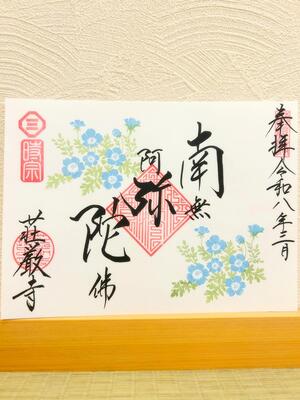 奉拝 令和八年三月
南無
阿弥
陀佛
時宗
荘厳寺